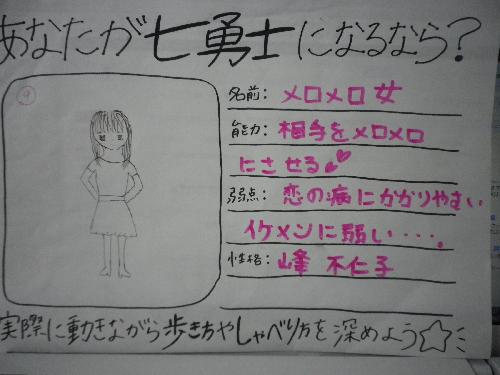 あなたが七勇士になるなら?
9
名前: メロメロ女
能力: 相手をメロメロ
にさせる💕
弱点: 恋の病にかかりやすい
イケメンに弱い・・・。
性格: 峰 不仁子
実際に動きながら歩き方やしゃべり方を深めよう☆